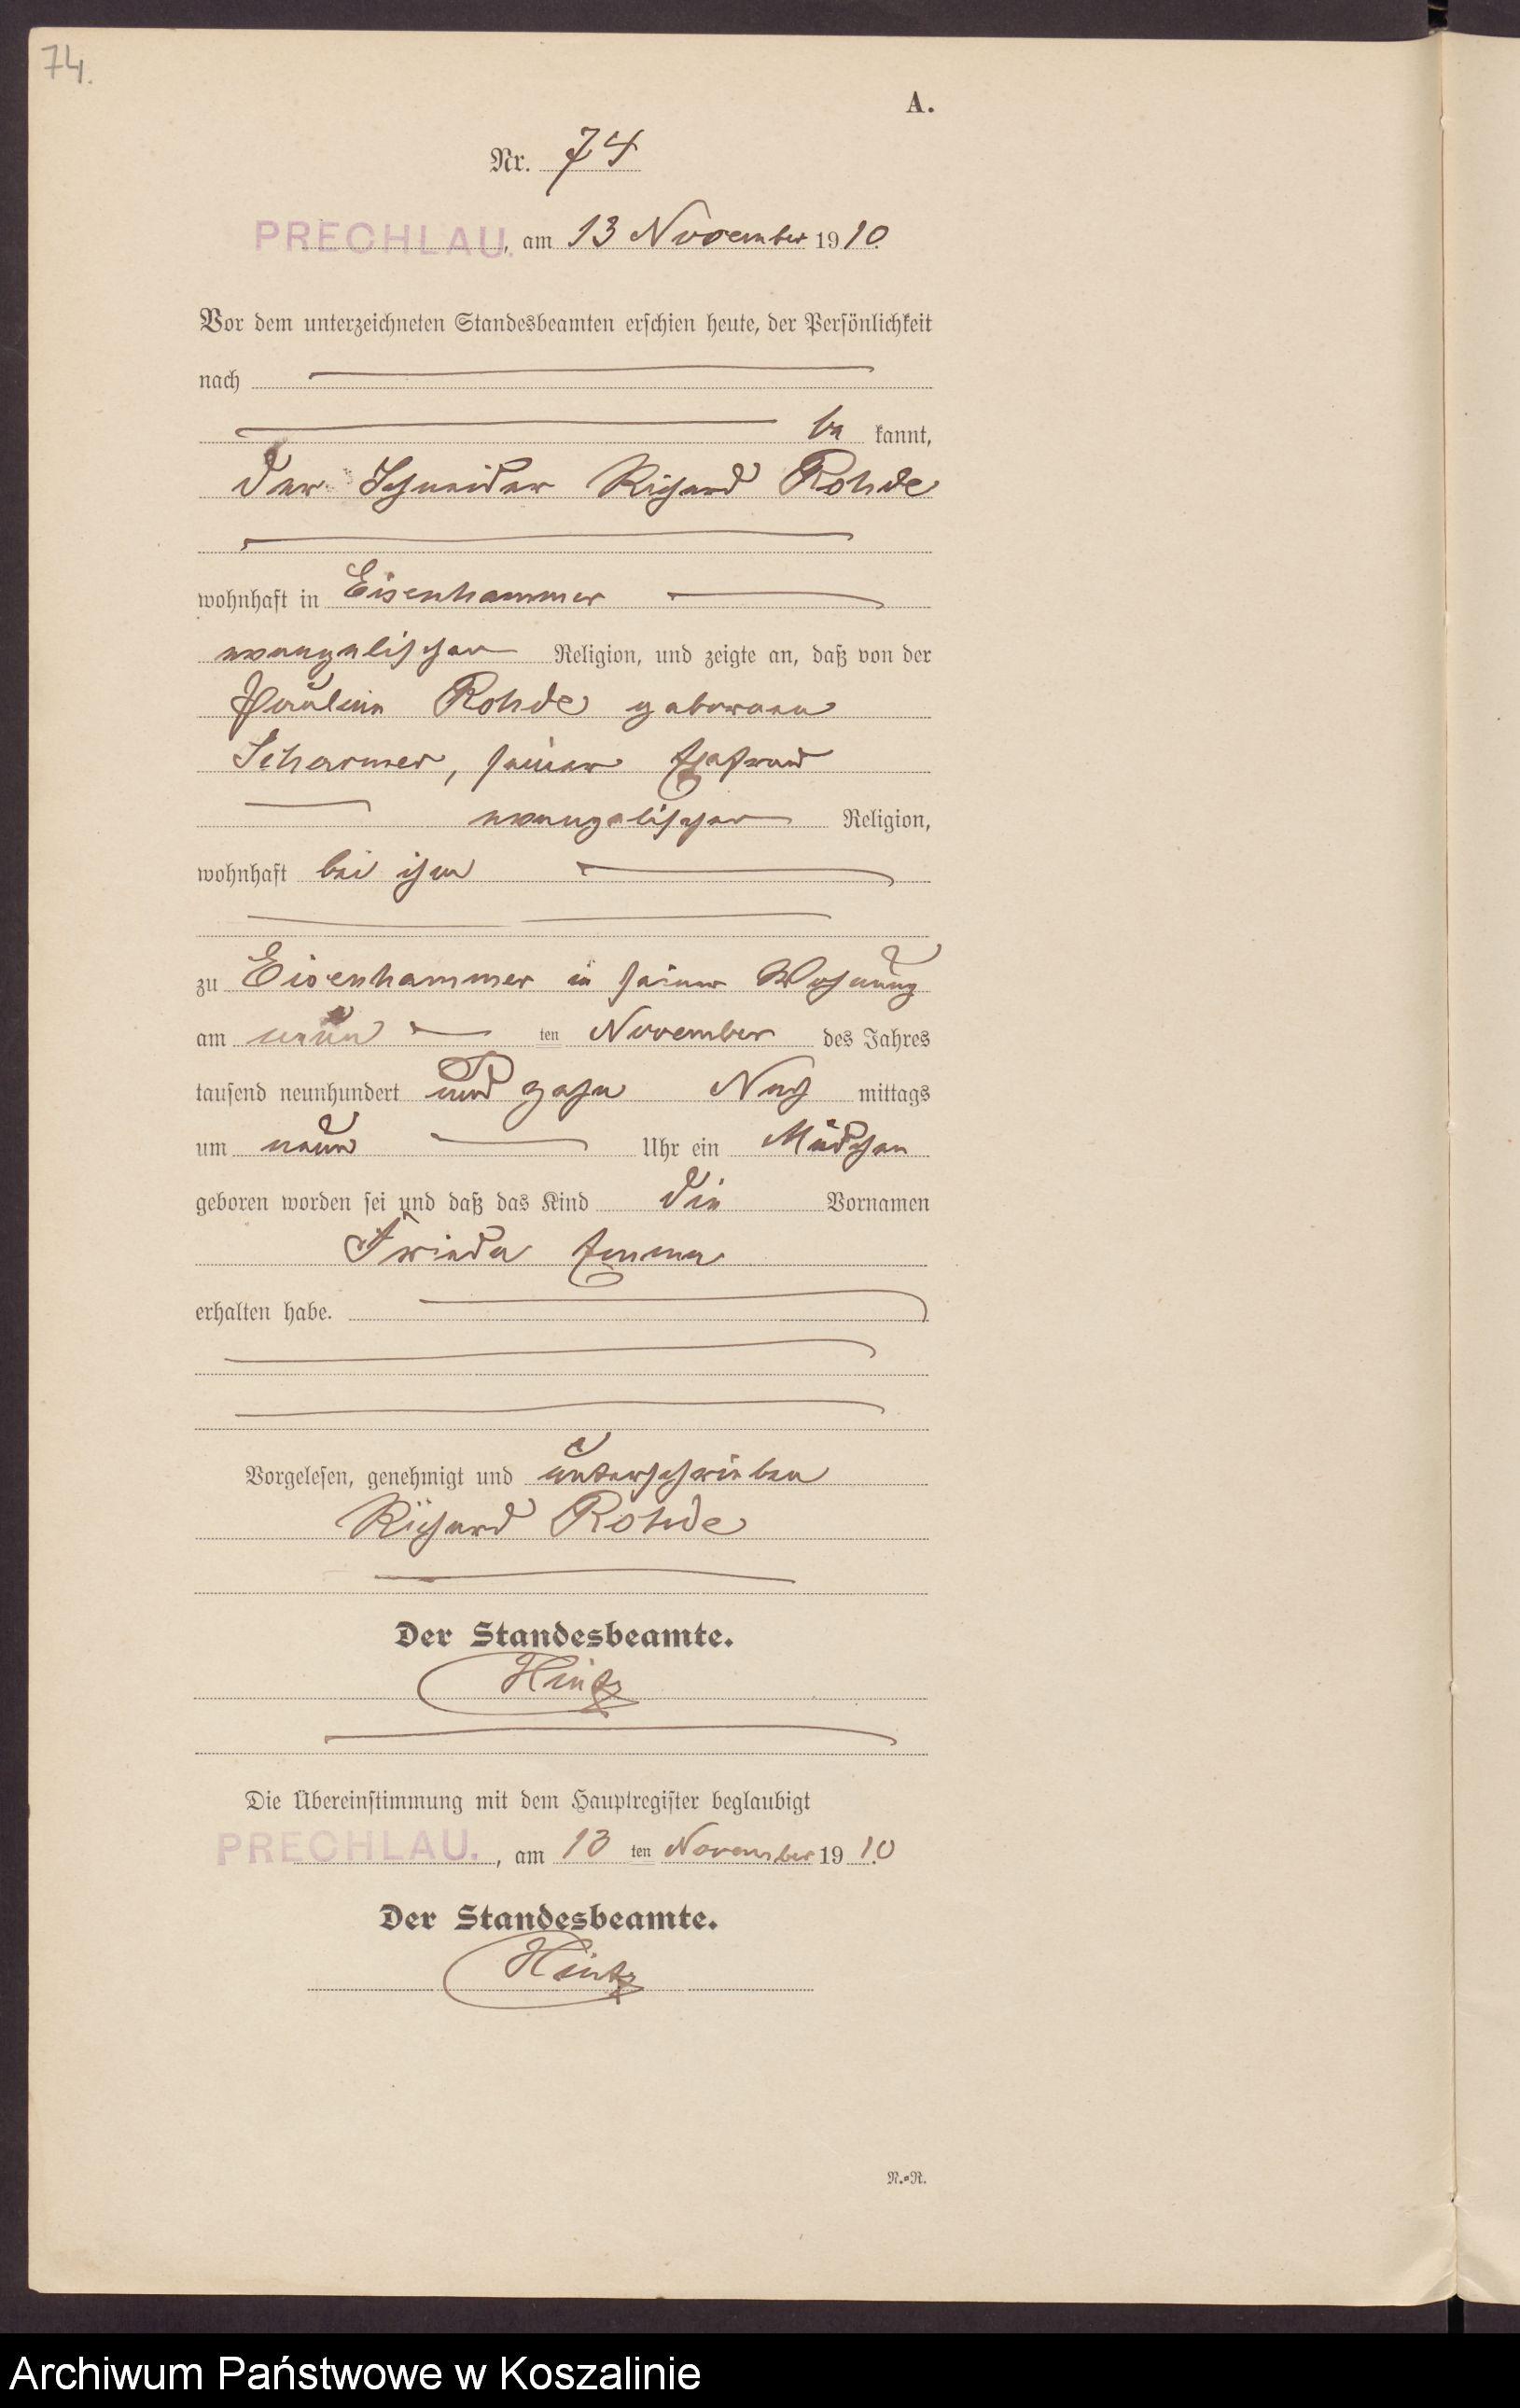 74.
A.
Nr. 74
PRECHLAU., am 13 November 1910.
Vor dem unterzeichneten Standesbeamten erschien heute, der Persönlichkeit
nach
be kannt,
der Schneider Richard Rohde
wohnhaft in Eisenhammer
evangelischer Religion, und zeigte an, daß von der
Pauline Rohde geborene
Scharmer, seiner Ehefrau
evangelischer Religion,
wohnhaft bei ihm
zu Eisenhammer in seiner Wohnung
am neun ten November des Jahres
tausend neunhundert und zehn Nach mittags
um neun Uhr ein Mädchen
geboren worden sei und daß das Kind die Vornamen
Frieda Emma
erhalten habe.
Vorgelesen, genehmigt und unterschrieben
Richard Rohde
Der Standesbeamte.
Hintz
Die Übereinstimmung mit dem Hauptregister beglaubigt
PRECHLAU., am 13 ten November 1910.
Der Standesbeamte.
Hintz
N.=R.
Archiwum Państwowe w Koszalinie